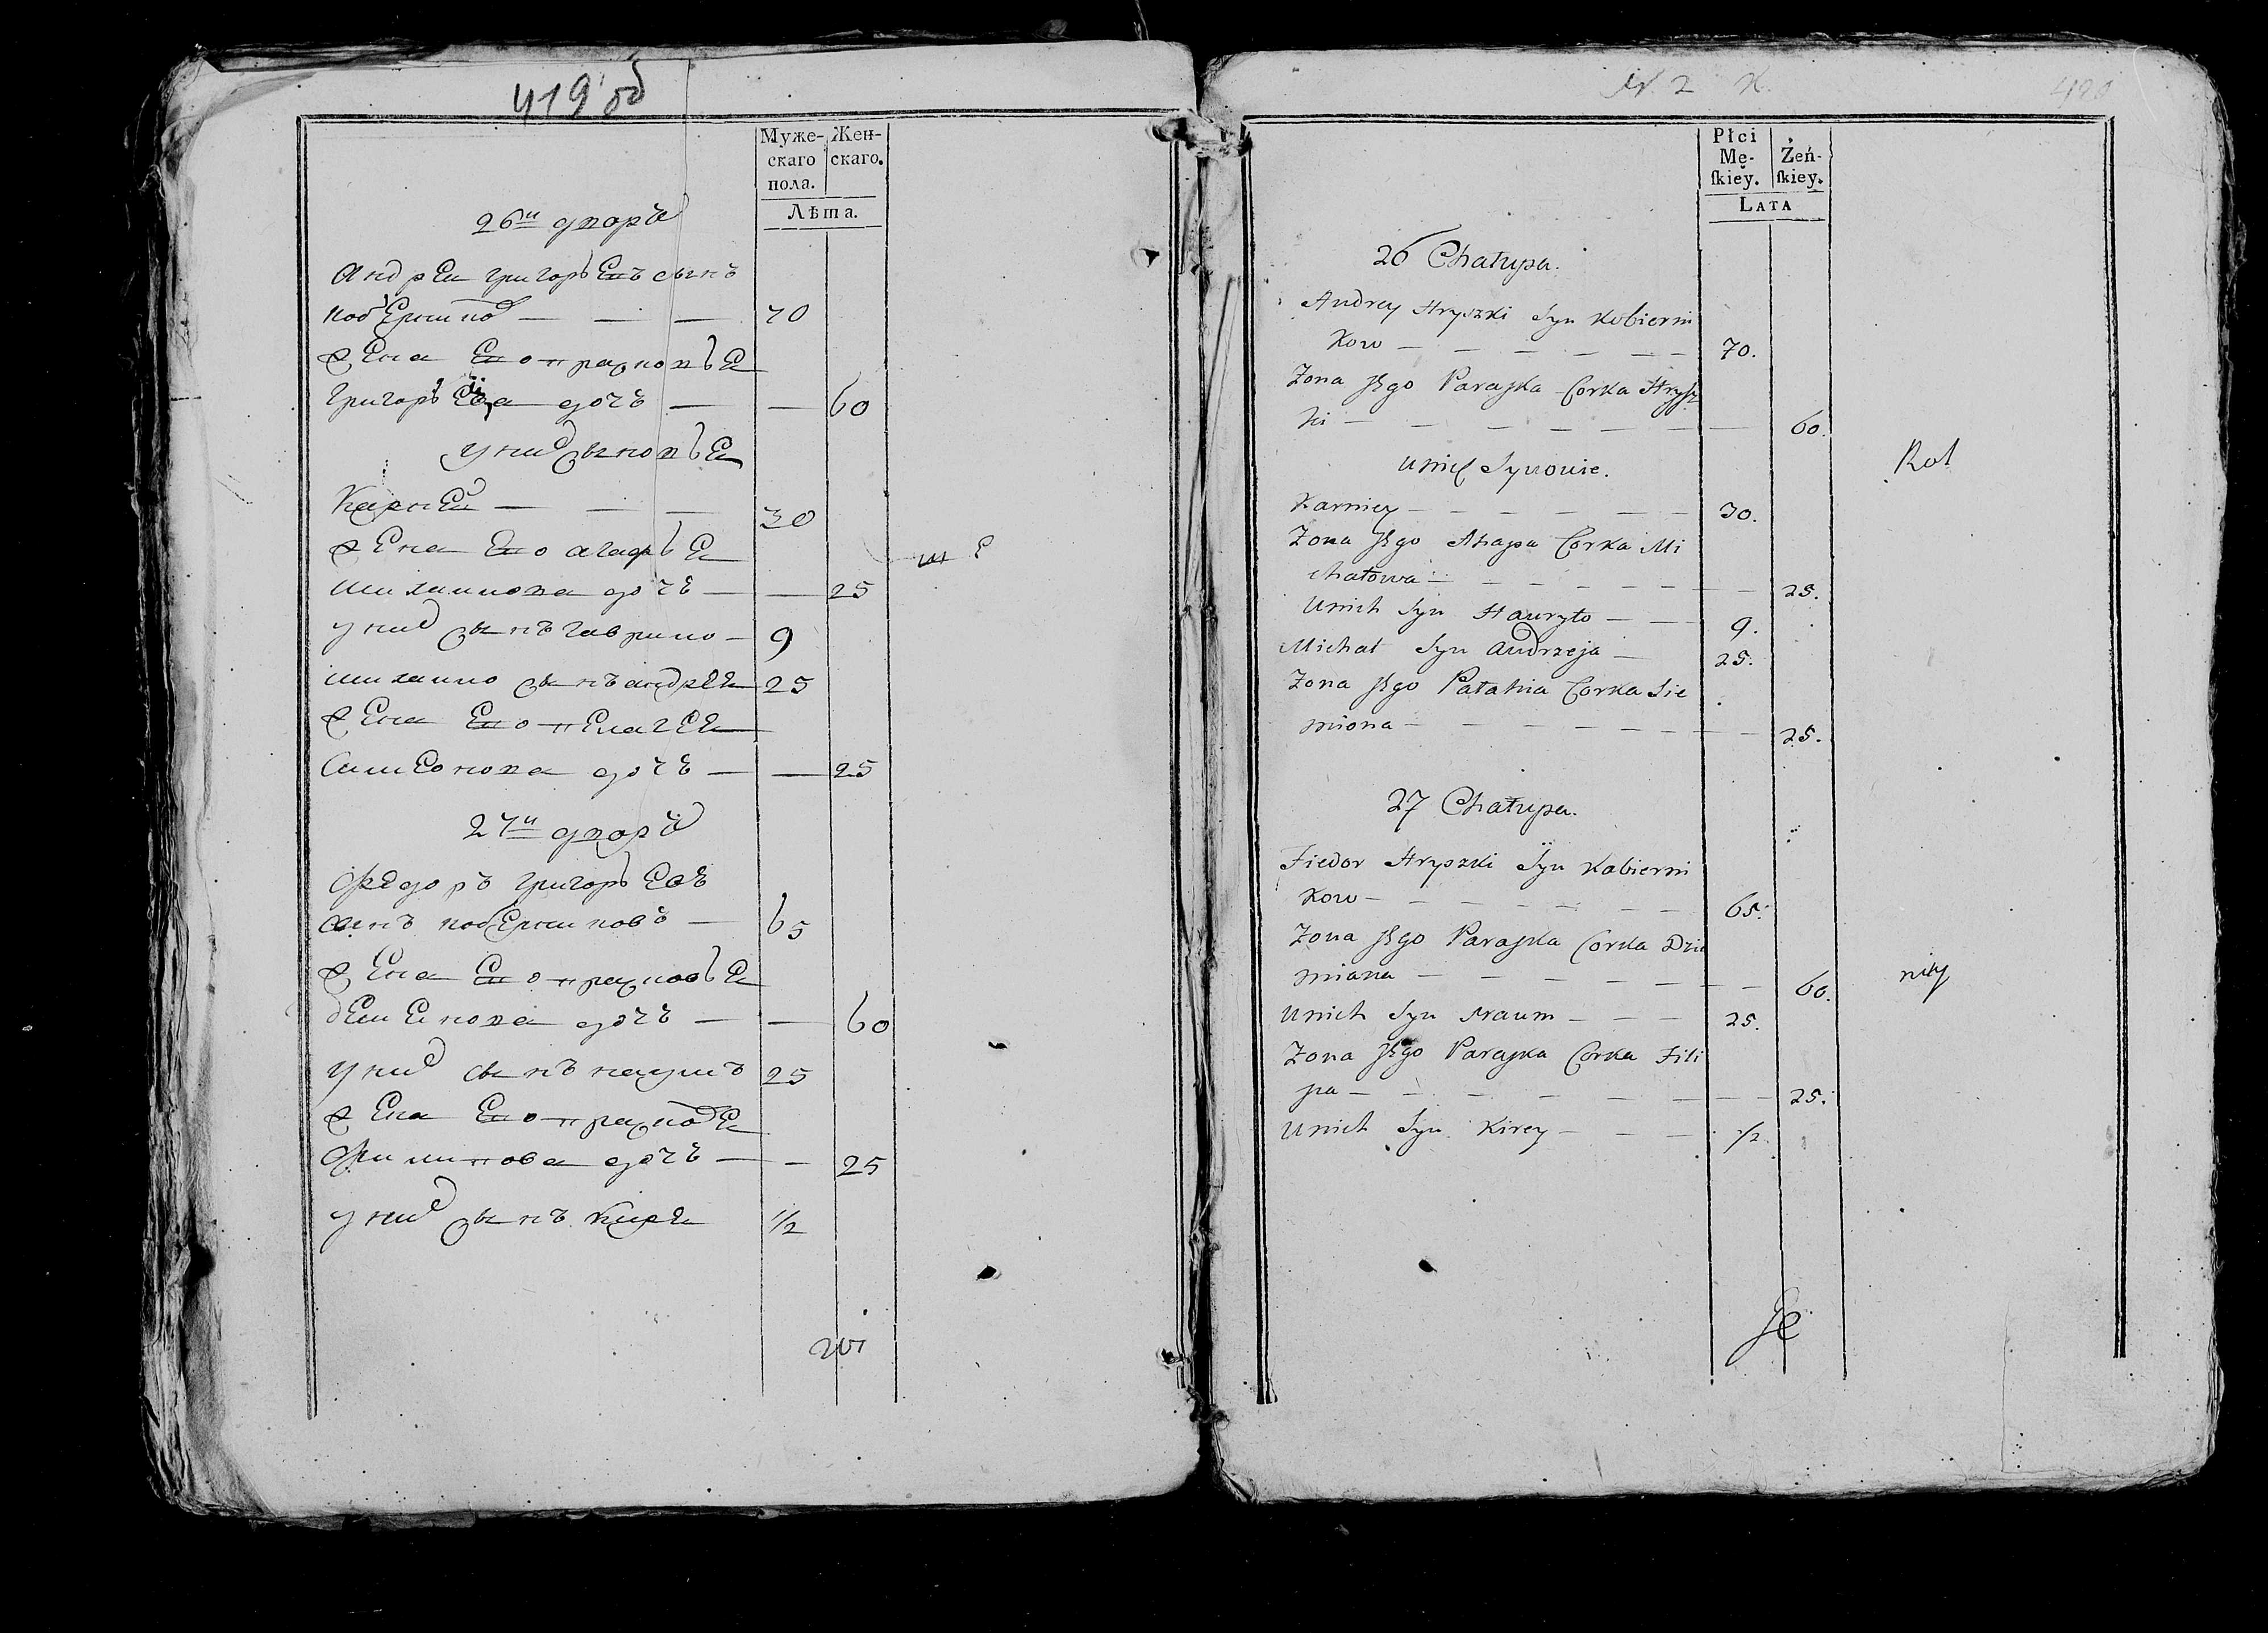 419 об
Муже- Жен-
скаго скаго.
пола.
Лѣта.
26й дворъ
Андрей Григорьевъ сынъ
Коберников — — — 70
Жена Ево Прасковья
Григорьева дочь — — 60
у них сыновья
Карней — — — 30
Жена Ево Агафья
Михаилова дочь — — 25
у них сынъ Гаврило — 9
Михаило сынъ Андрея 25
Жена Ево Пелагея
Симеонова дочь — — 25
27й дворъ
Федоръ Григорьевъ
сынъ Коберниковъ — 65
Жена Ево Прасковья
Деменова дочь — — 60
у них сынъ Наумъ 25
Жена Ево Прасковья
Филипова дочь — — 25
у них сынъ Кирей 1/2
N. 2 K. 420
Płci
Mę- Żeń-
ſkiey. ſkiey.
LATA
26 Chałupa.
Andrey Hryszki Syn Kobierni
kow — — — — — — 70.
Zona Jego Paraska Corka Hrysz
ki — — — — — — — 60.
Unich Synowie.
Karniey — — — — — — 30.
Zona Jego Ahapa Corka Mi
chałowa — — — — — — — 25.
Unich Syn Hauryło — — 9.
Michał Syn Andrzeja — 25.
Zona Jego Pałahia Corka Sie
miona — — — — — — — 25.
27 Chałupa.
Fiedor Hryszki Syn Kobierni
kow — — — — — — — 65.
Zona Jego Paraska Corka Dzie
miana — — — — — — — 60.
Unich Syn Naum — — — 25.
Zona Jego Paraska Corka Fili
pa — — — — — — — — 25.
Unich Syn Kirey — — — 1/2